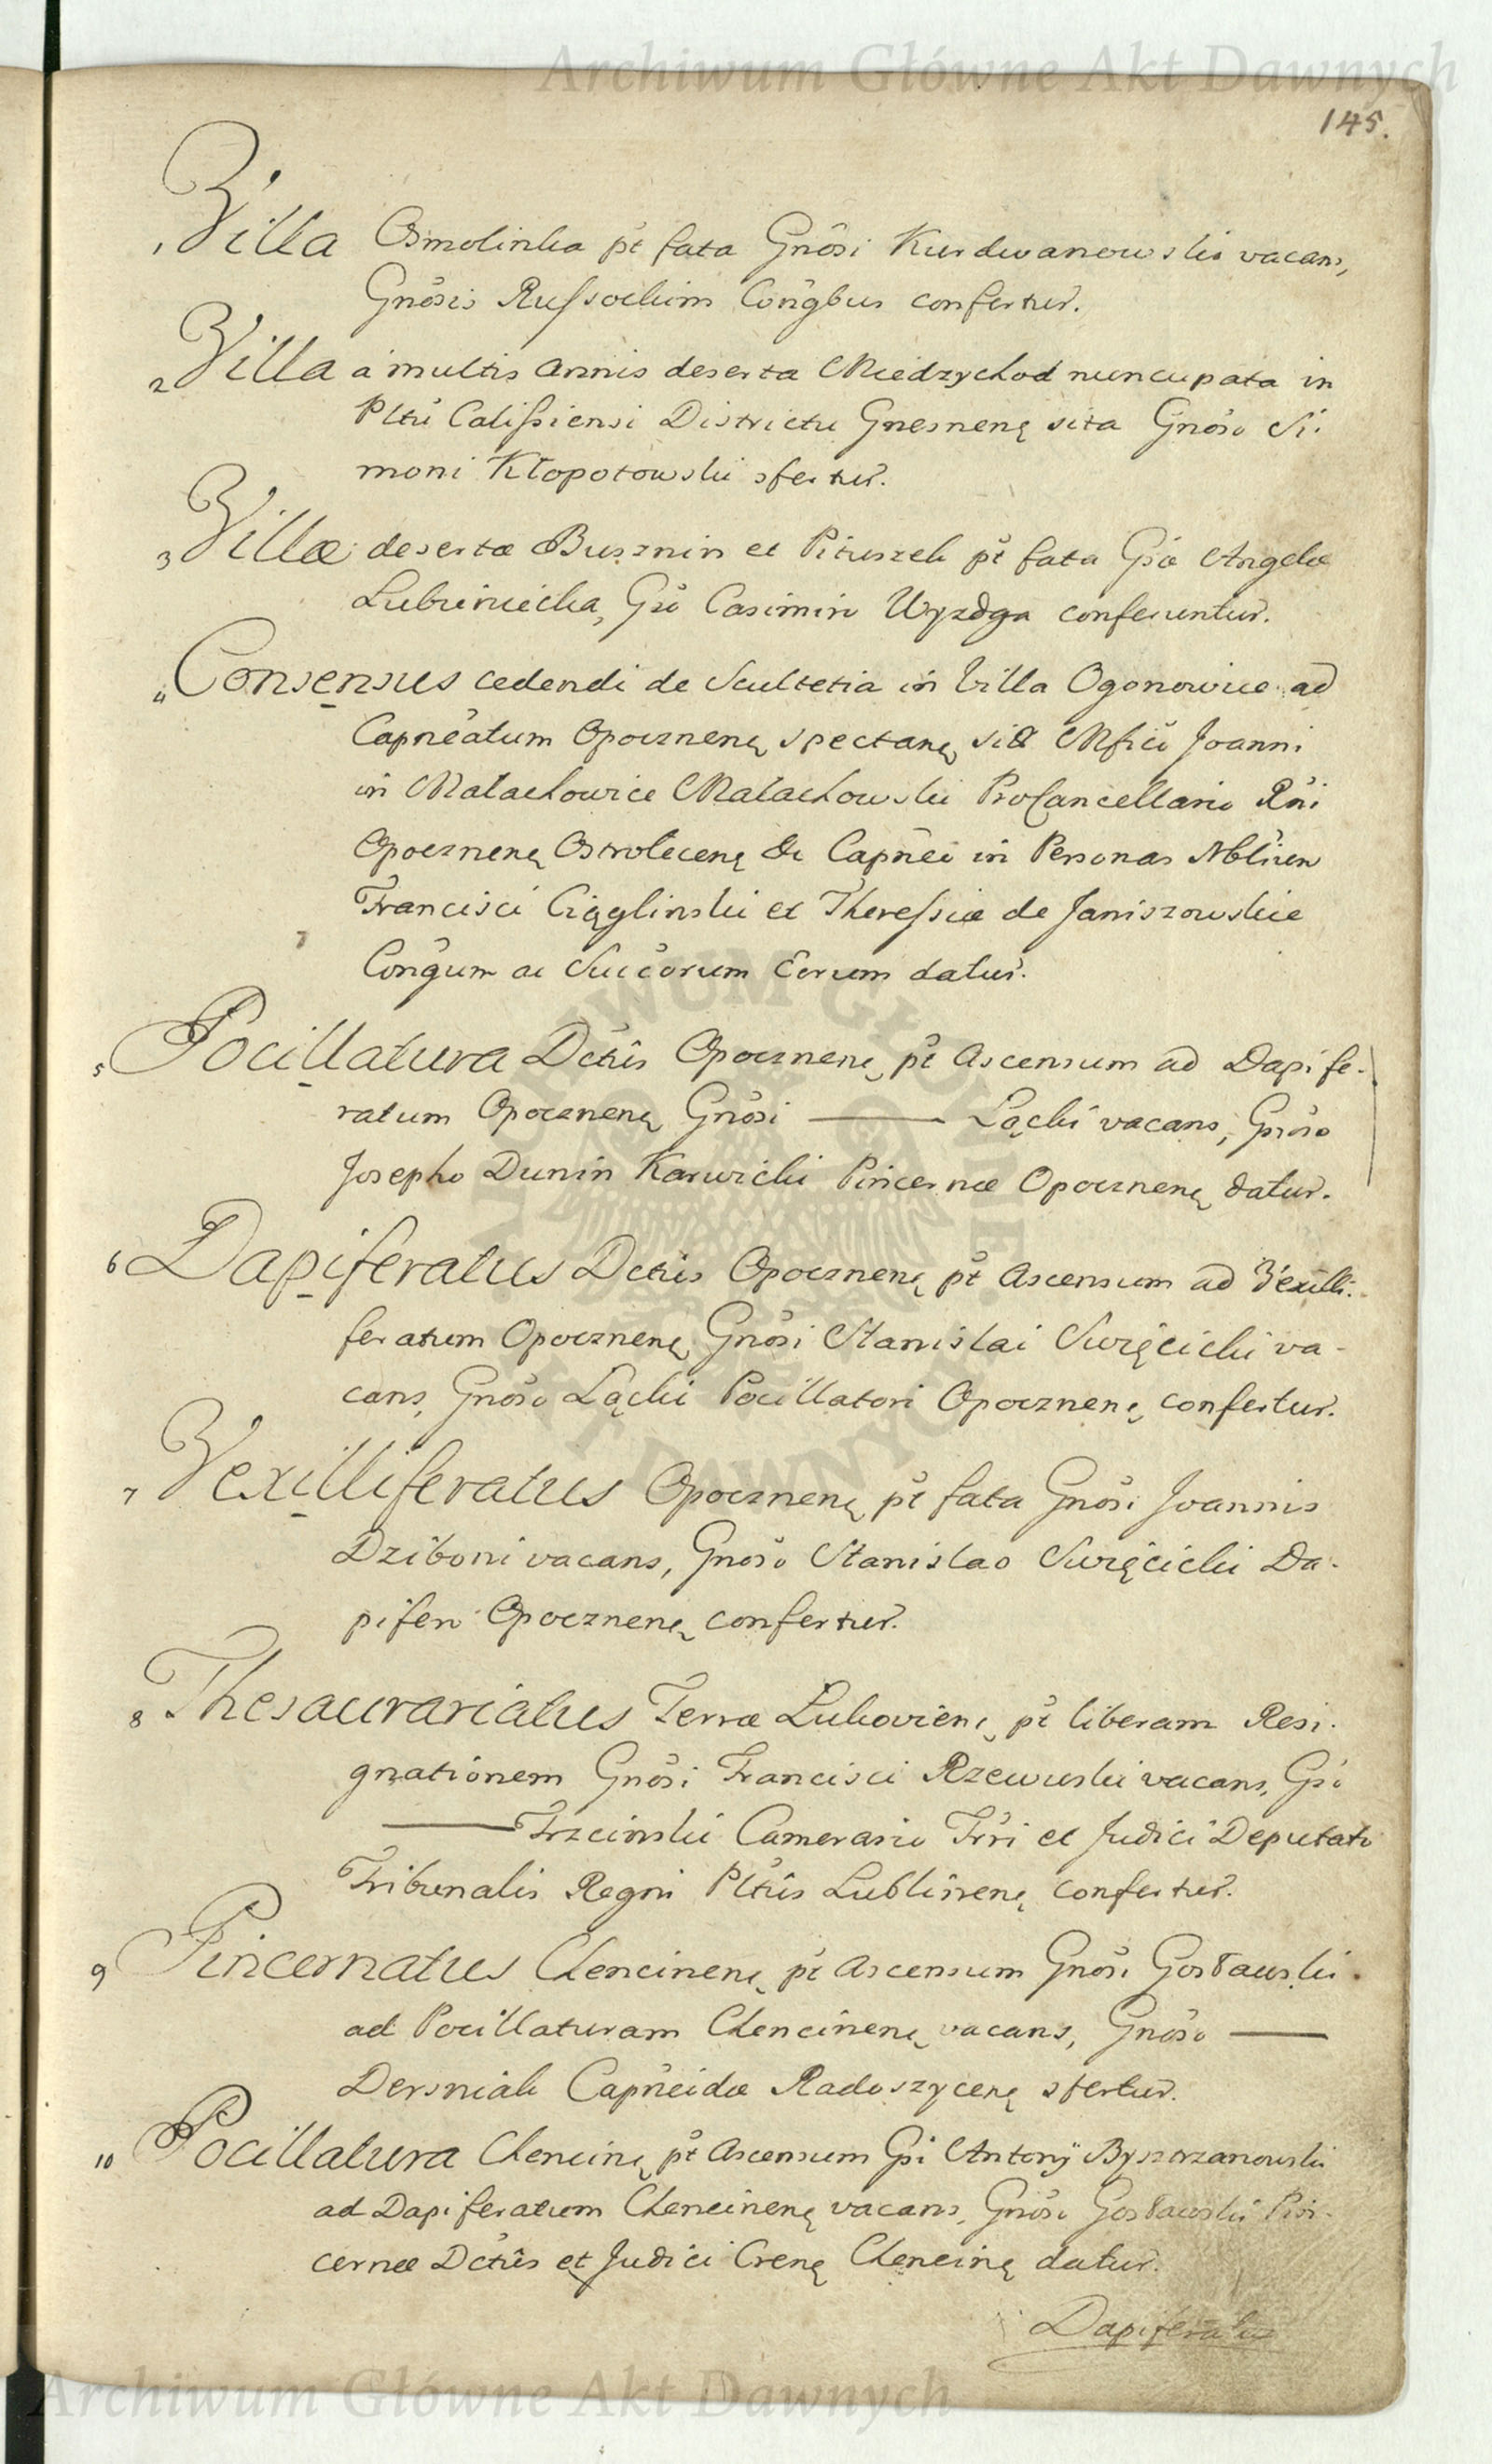 Archiwum Główne Akt Dawnych
145.
1 Villa Osmolinka pt fata Gnosi Kurdwanowski vacans,
Gnosis Russockim Congbus confertur.
2 Villa a multis annis deserta Miedzychod nuncupata in
Pltu Calissiensi Districtu Gnesnen sita Gnoso Si-
moni Kłopotowski confertur.
3 Villæ desertæ Busznin et Pituszek pt fata Gsæ Angelæ
Lubieniecka, Gso Casimiro Wyzdga conferuntur.
4 Consensus cedendi de Scultetia in Villa Ogonowice ad
Capneatum Opocznen spectan, sita Mfico Joanni
in Małachowice Małachowski ProCancellario Rni
Opocznen Ostrolecen &c Capneo in Personas Nbliren
Francisci Ciągliński et Theressiæ de Janiszowskie
Congum ac Succorum Eorum datur.
5 Pocillatura Dctus Opocznen, pt Ascensum ad Dapife-
ratum Opocznen Gnosi ——— Łącki vacans, Gnoso
Josepho Dunin Karwicki Pincernæ Opocznen datur.
6 Dapiferatus Dctus Opocznen pt Ascensum ad Vexilli-
feratum Opocznen Gnosi Stanislai Swięcicki va-
cans, Gnoso Łącki Pocillatori Opocznen, confertur.
7 Vexilliferatus Opocznen pt fata Gnosi Joannis
Dziboni vacans, Gnoso Stanislao Swięcicki Da-
pifero Opocznen confertur.
8 Thesaurariatus Terræ Lukovien, pt liberam Resi-
gnationem Gnosi Francisci Rzewuski vacans, Gso
——— Trzcinski Camerario Trri et Judici Deputato
Tribunalis Regni Pltus Lublinen confertur.
9 Pincernatus Chencinen, pt Ascensum Gnosi Gosławski
ad Pocillaturam Chencinen vacans, Gnoso ———
Dersniak Capneidæ Radoszycen confertur.
10 Pocillatura Chencin, pt Ascensum Gsi Antonij Bystrzanowski
ad Dapiferatum Chencinen vacans, Gnoso Gosławski Pin-
cernæ Dctus et Judici Cren Chencin datur.
Dapiferatus
Archiwum Główne Akt Dawnych